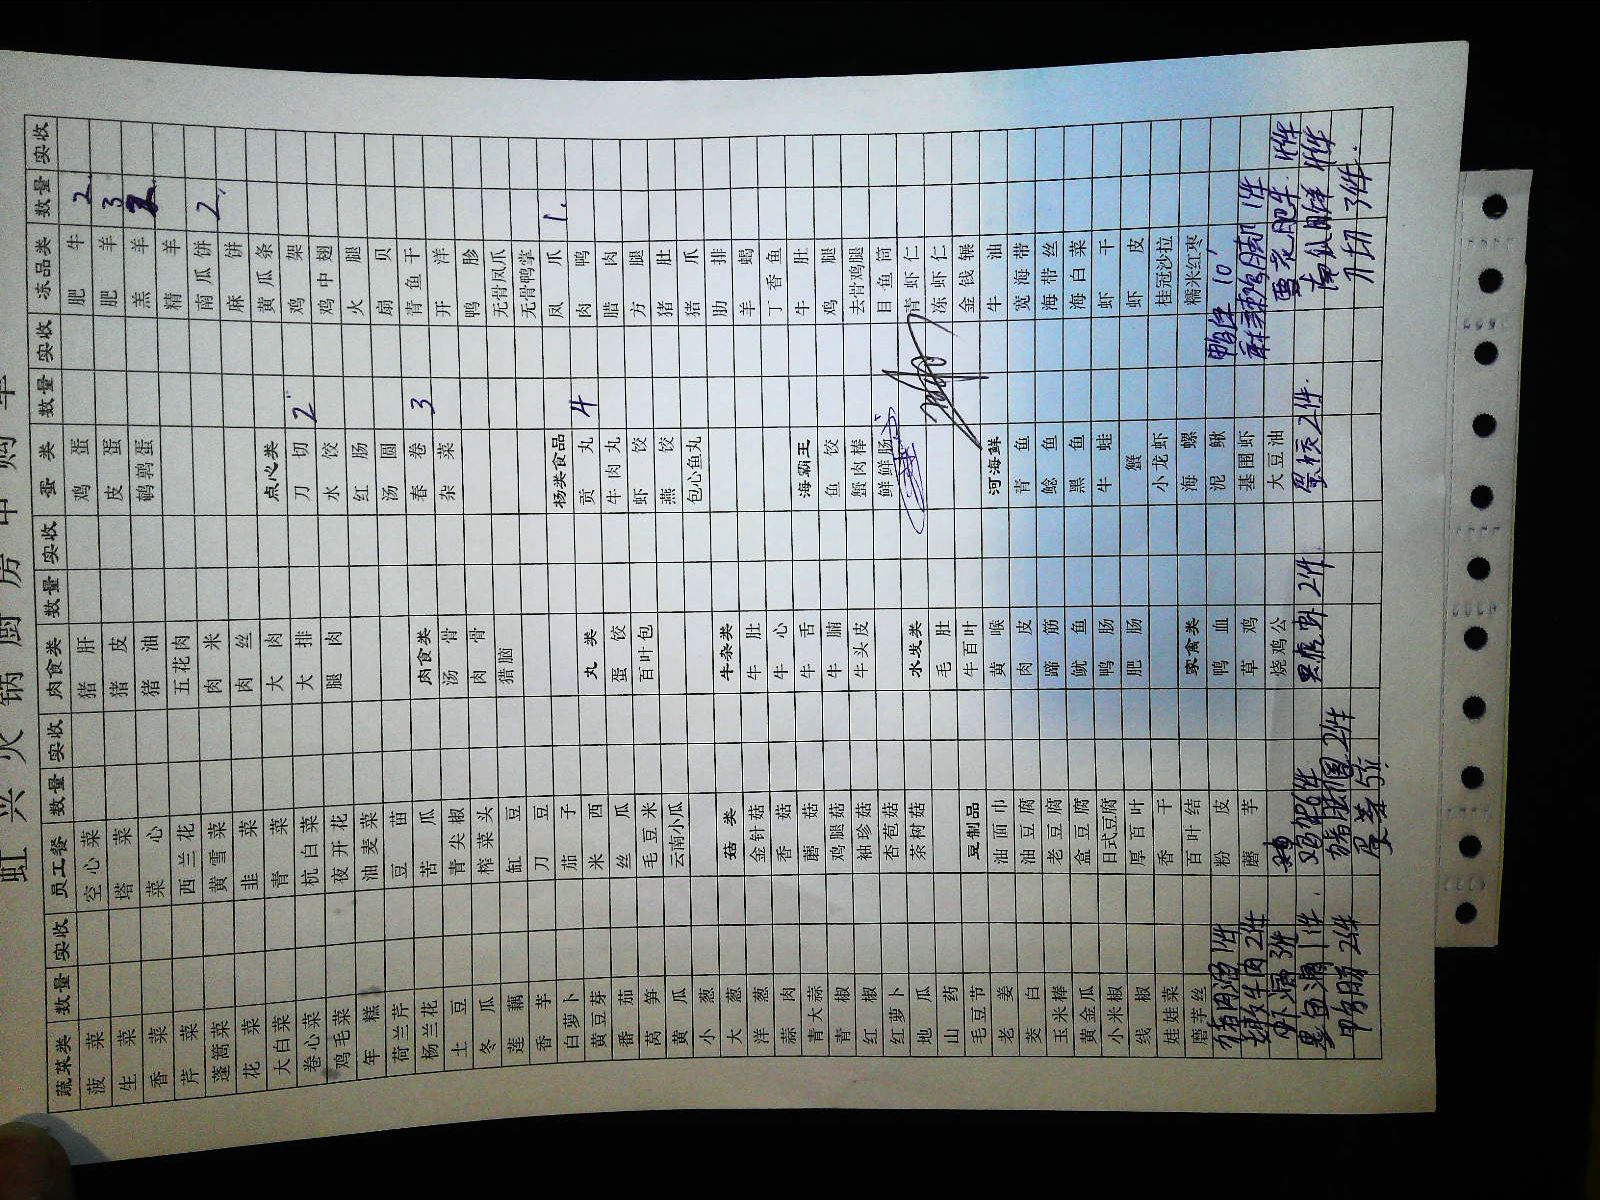 虹兴火锅厨房申购单
蔬菜类 数量 实收 员工餐 数量 实收 肉食类 数量 实收 蛋类 数量 实收 冻品类 数量 实收
菠菜 空心菜 猪肝 鸡蛋 肥牛 2
生菜 塔菜 猪皮 皮蛋 肥羊 3
香菜 菜心 猪油 鹌鹑蛋 羔羊 2
芹菜 西兰花 五花肉 精羊
蓬蒿菜 黄雪菜 肉米 南瓜饼 2
花菜 韭菜 肉丝 麻饼
大白菜 青菜 大肉 点心类 黄瓜条
卷心菜 杭白菜 大排 刀切 2 鸡架
鸡毛菜 夜开花 腿肉 水饺 鸡中翅
年糕 油麦菜 红肠 火腿
荷兰芹 豆苗 汤圆 扇贝
杨兰花 苦瓜 肉食类 春卷 3 青鱼干
土豆 青尖椒 汤骨 杂菜 开洋
冬瓜 榨菜头 肉骨 鸭胗
莲藕 缸豆 猎脑 无骨凤爪
香芋 刀豆 无骨鸭掌
白萝卜 茄子 杨类食品 凤爪 1
黄豆芽 米西 丸类 贡丸 4 肉鸭
番茄 丝瓜 蛋饺 牛肉丸 腊肉
莴笋 毛豆米 百叶包 虾饺 方腿
黄瓜 云南小瓜 燕饺 猪肚
小葱 包心鱼丸 猪爪
大葱 菇类 牛杂类 肋排
洋葱 金针菇 牛肚 羊蝎
蒜肉 香菇 牛心 丁香鱼
青大蒜 蘑菇 牛舌 海霸王 牛肚
青椒 鸡腿菇 牛腩 鱼饺 鸡腿
红椒 袖珍菇 牛头皮 蟹肉棒 去骨鸡腿
红萝卜 杏苞菇 鲜鲜肠 目鱼筒
地瓜 茶树菇 水发类 青虾仁
山药 毛肚 冻虾仁
毛豆节 豆制品 牛百叶 金钱辗
老姜 油面巾 黄喉 河海鲜 牛油
茭白 油豆腐 肉皮 青鱼 宽海带
玉米棒 老豆腐 蹄筋 鲶鱼 海带丝
黄金瓜 盒豆腐 鱿鱼 黑鱼 海白菜
小米椒 日式豆腐 鸭肠 牛蛙 虾干
线椒 厚百叶 肥肠 蟹 虾皮
娃娃菜 香干 小龙虾 桂冠沙拉
磨芋丝 百叶结 家禽类 海螺 糯米红枣
1件 粉皮 鸭血 泥鳅 10
牛肉 2件 蘑芋 草鸡 基围虾 1件
3件 烧鸡公 大豆油 雪花肥牛 4件
黑鱼 1件 鸡 6件 2件 2件 4件
鸭肠 2件 2件 刀切 3件